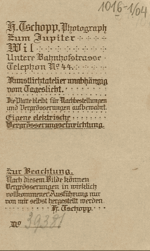 1016-1/04
H. Tschopp, Photograph
zum Jupiter
Wil
Untere Bahnhofstrasse
Telephon No 44.
Kunstlichtatelier unabhängig
vom Tageslicht.
Die Platte bleibt für Nachbestellungen
und Vergrösserungen aufbewahrt.
Eigene elektrische
Vergrösserungseinrichtung.
Zur Beachtung.
Nach diesem Bilde können
Vergrösserungen in wirklich
vollkommener Ausführung nur
von mir selbst hergestellt werden
H. Tschopp.
No